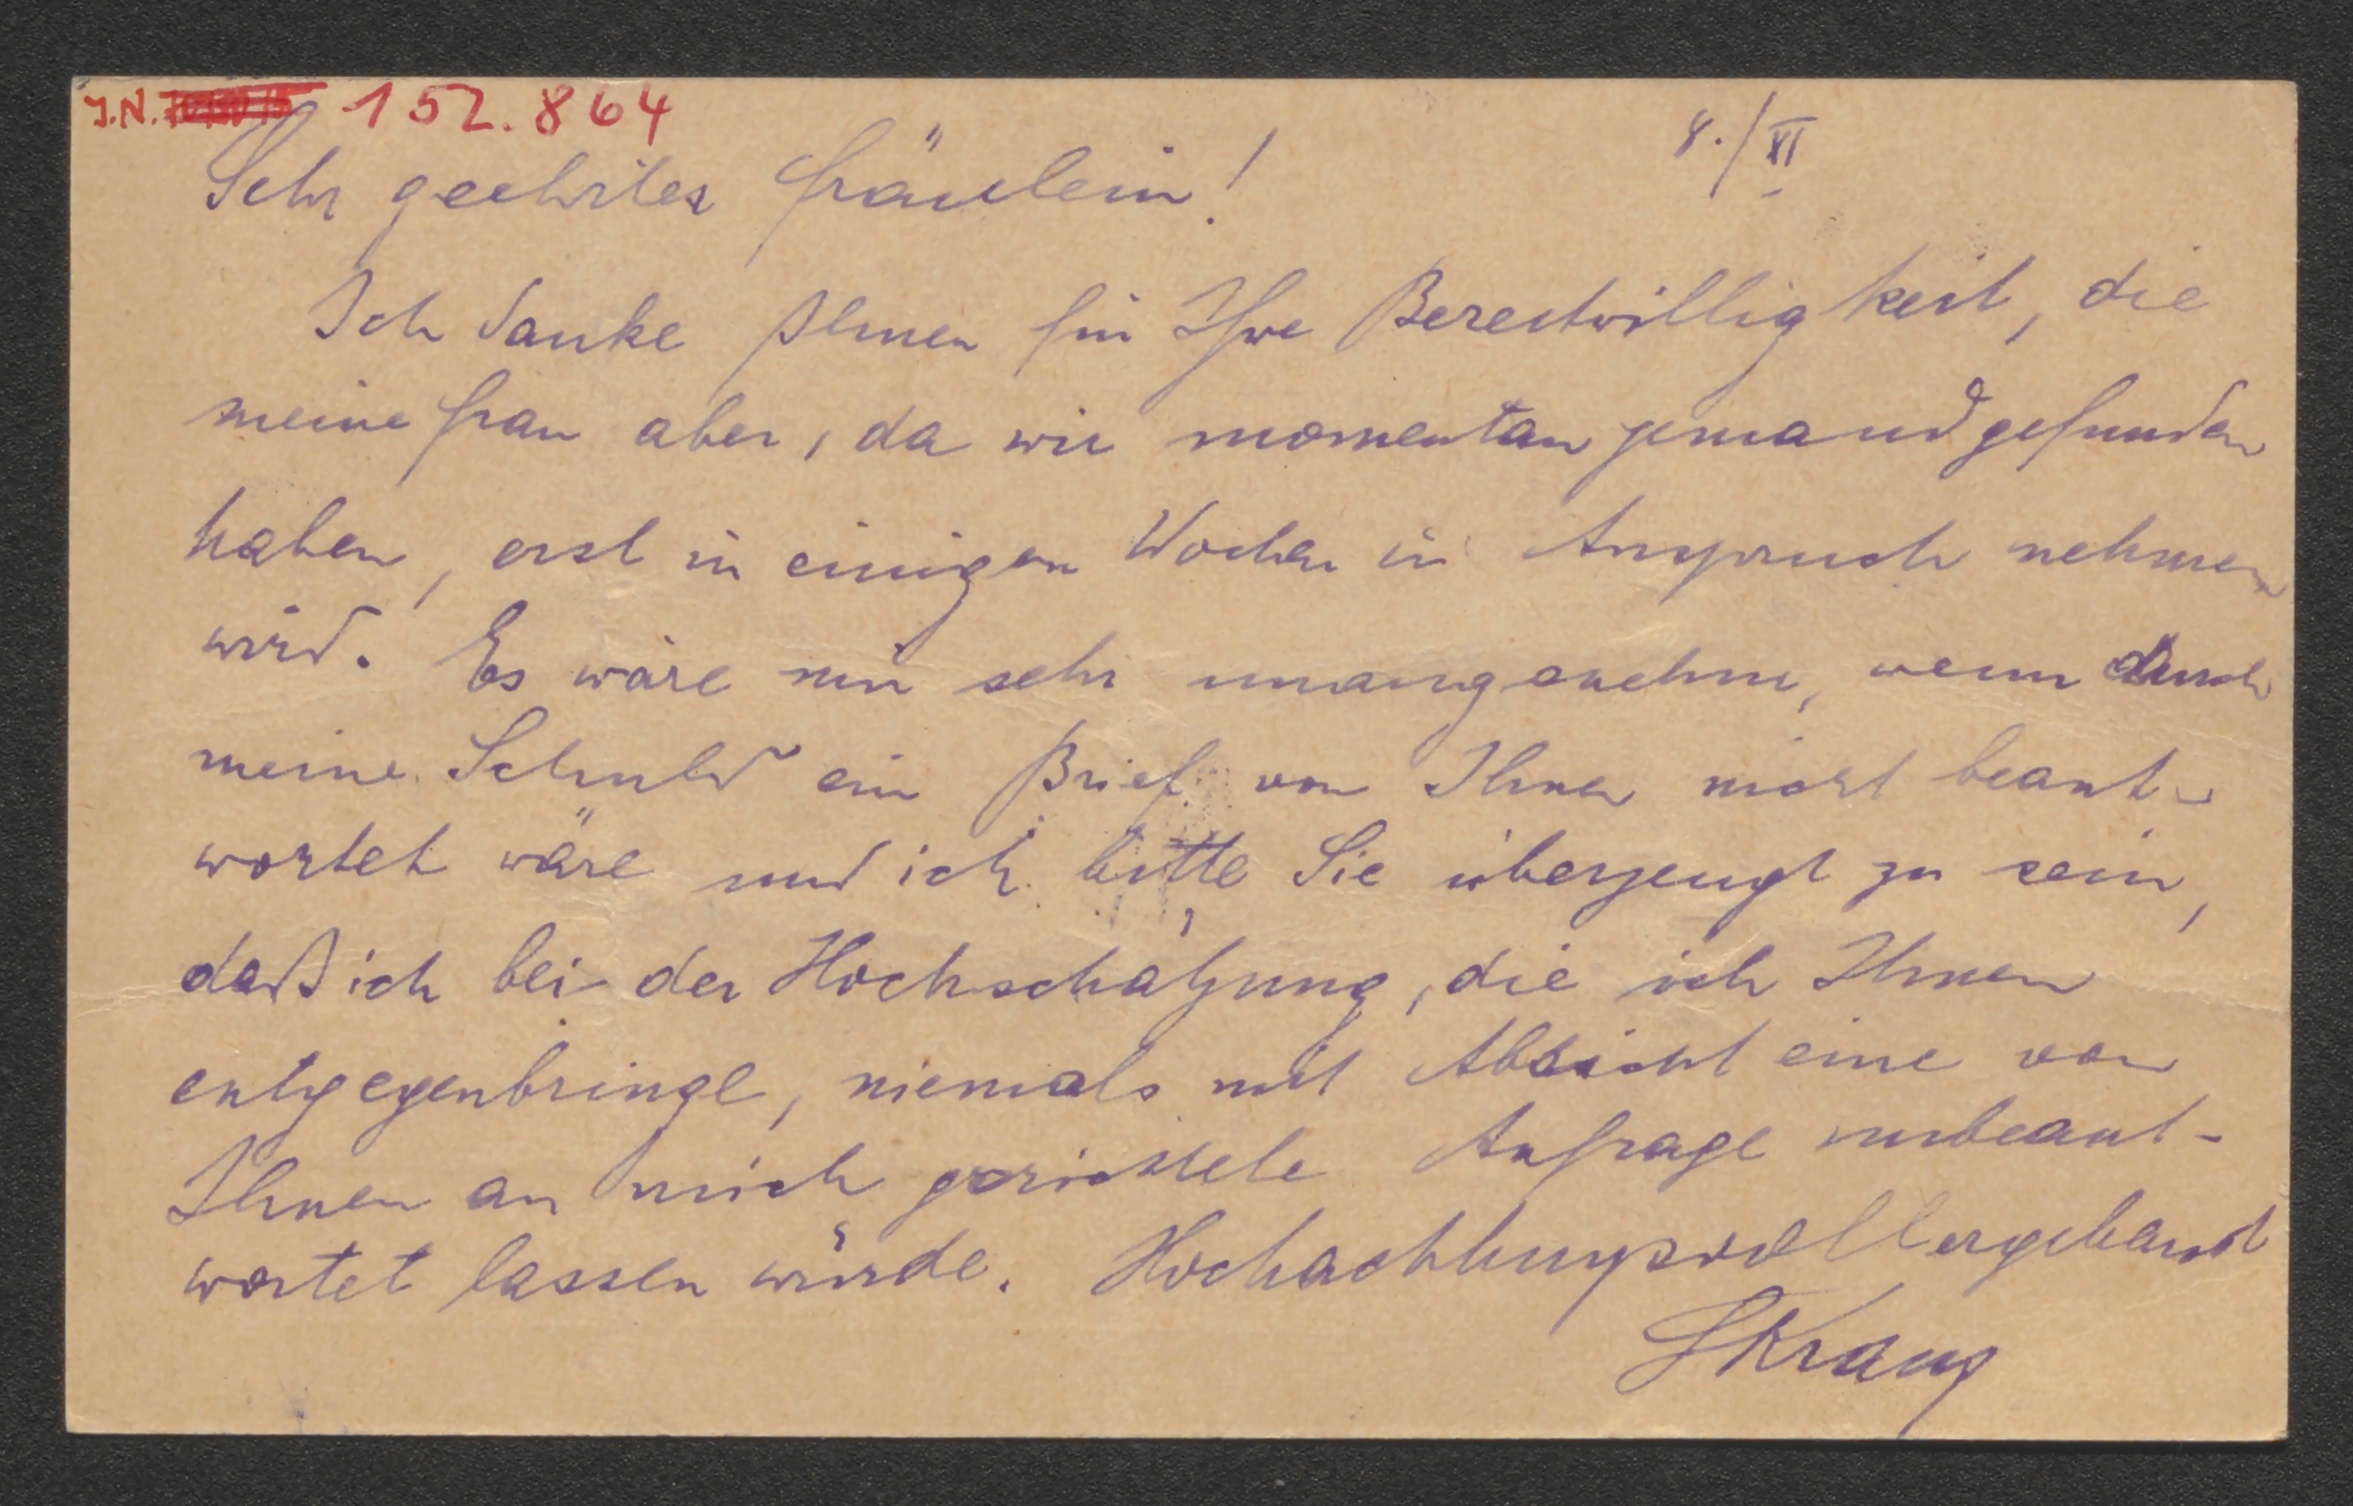 J.N. 152.864
8./XI
Sehr geehrtes Fräulein!
Ich danke Ihnen für Ihre Bereitwilligkeit, die
meine Frau aber, da wir momentan jemand gefunden
haben, erst in einigen Wochen in Anspruch nehmen
wird. Es wäre mir sehr unangenehm, wenn durch
meine Schuld ein Brief von Ihnen nicht beant-
wortet wäre und ich bitte Sie überzeugt zu sein,
daß ich bei der Hochschätzung, die ich Ihnen
entgegenbringe, niemals mit Absicht eine von
Ihnen an mich gerichtete Anfrage unbeant-
wortet lassen würde. Hochachtungsvoll ergebenst